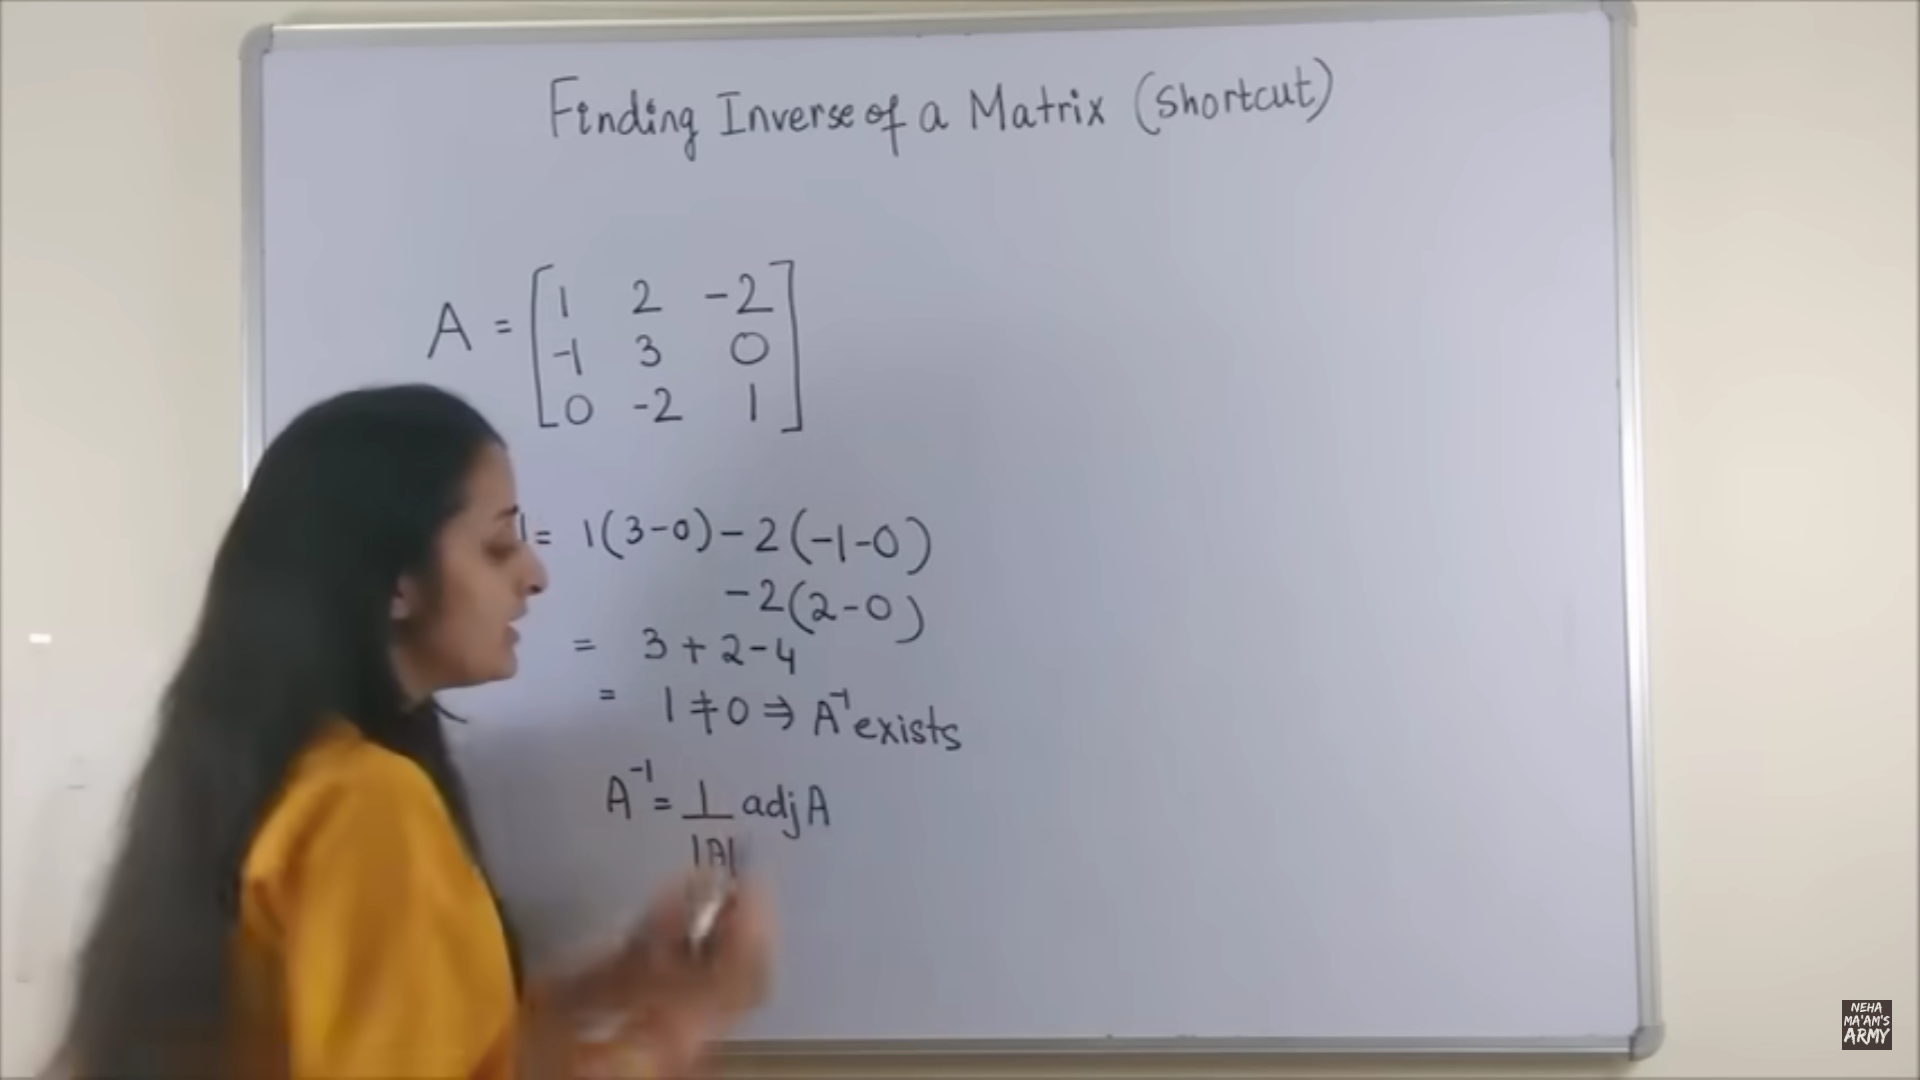 Finding Inverse of a Matrix (Shortcut)
A = [1 2 -2
-1 3 0
0 -2 1]
|= 1(3-0)-2(-1-0)
-2(2-0)
= 3+2-4
= 1≠0 ⇒ A⁻¹ exists
A⁻¹ = 1/|A| adj A
NEHA
MA'AM'S
ARMY